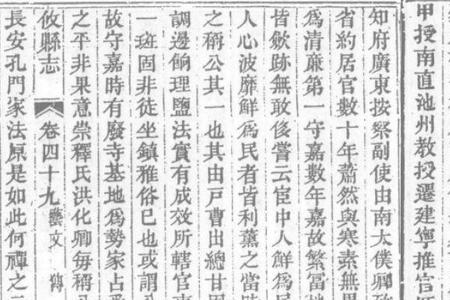 甲授南直池州教授遷建寧推官
知府廣東按察副使由南太僕卿
省約居官數十年蕭然與寒素無
爲清廉第一守嘉數年嘉故繁冨
皆歛跡無敢後嘗云宦中人鮮爲民
人心波靡鮮爲民者皆利薰之當時
之稱公其一也其由戸曹出總甘
調邊餉理鹽法實有成效所轄官
一班固非徒坐鎮雅俗巳也或謂
故守嘉時有廢寺基地爲勢家占
之平非果意崇釋氏洪化卿毎稱
攸縣志 卷四十九 藝文 傳
長安孔門家法原是如此何禪之